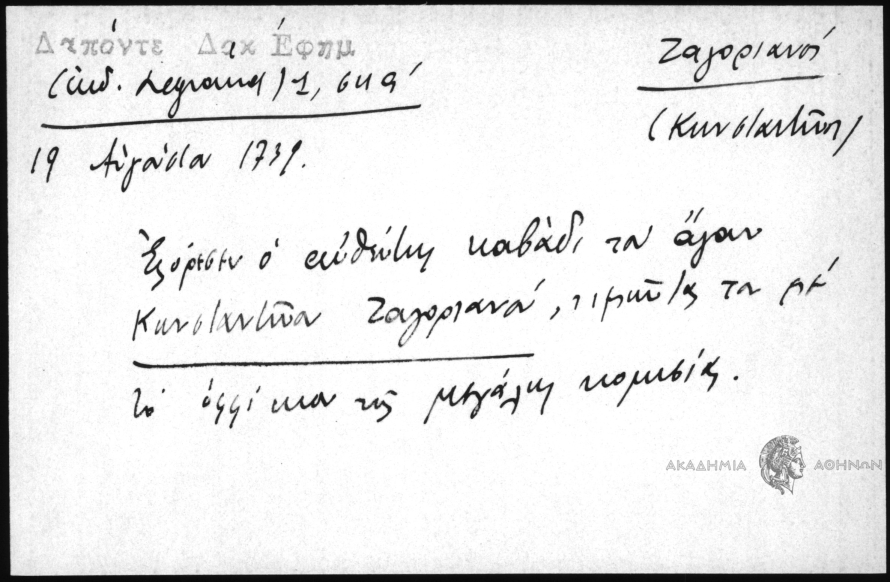 Δαπόντε Δακ Ἐφημ
(ἐκδ. Legrand) 1, σκα΄
Ζαγοριανός
(Κωνσταντῖνος)
19 Αὐγούστου 1739.
Ἐφόρεσεν ὁ αὐθέντης καβάδι τον ἄγαν
Κωνσταντῖνον Ζαγοριανόν, τιμήσας τον μέ
τό ὀφφίκιον τῆς μεγάλης κομισίας.
ΑΚΑΔΗΜΙΑ ΑΘΗΝΩΝ